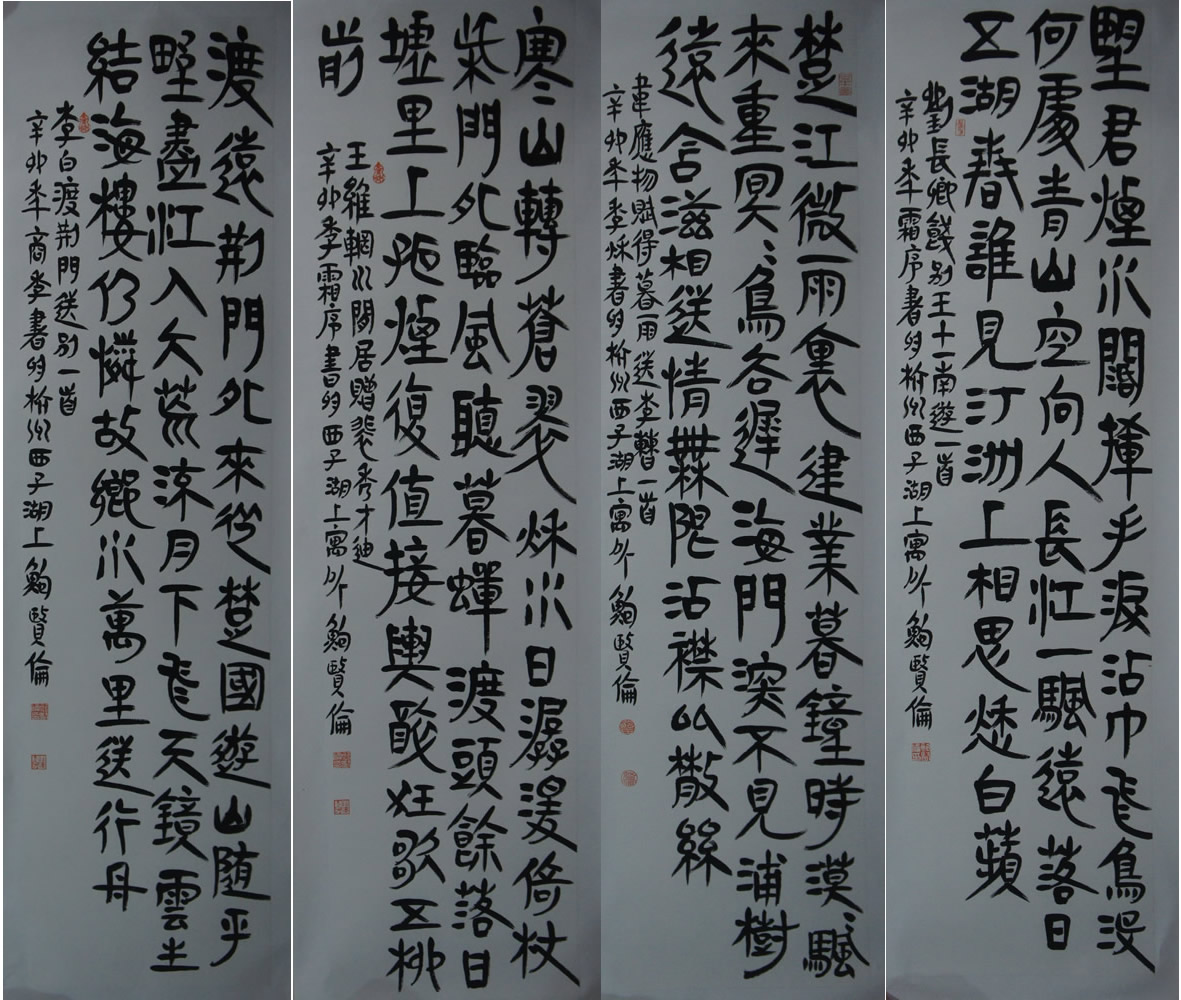 望君煙水闊揮手淚沾巾飛鳥沒
何處青山空向人長江一颿遠落日
五湖春誰見汀洲上相思愁白蘋
劉長卿餞别王十一南遊一首
辛卯年霜序書於杭州西子湖上寓所鮑賢倫
楚江微雨裏建業暮鐘時漠〻颿
來重冥〻鳥各遲海門深不見浦樹
遠含滋相送情無限沾襟比散絲
韋應物賦得暮雨送李曹一首
辛卯年季秋書於杭州西子湖上寓所鮑賢倫
寒山轉蒼翠秋水日潺湲倚杖
柴門外臨風聽暮蟬渡頭餘落日
墟里上孤煙復值接輿醉狂歌五柳
前
王維輞川閒居贈裴秀才迪
辛卯季霜序書於西子湖上寓所鮑賢倫
渡遠荊門外來從楚國遊山隨平
野盡江入大荒流月下飛天鏡雲生
結海樓仍憐故鄉水萬里送行舟
李白渡荊門送别一首
辛卯年商季書於杭州西子湖上鮑賢倫